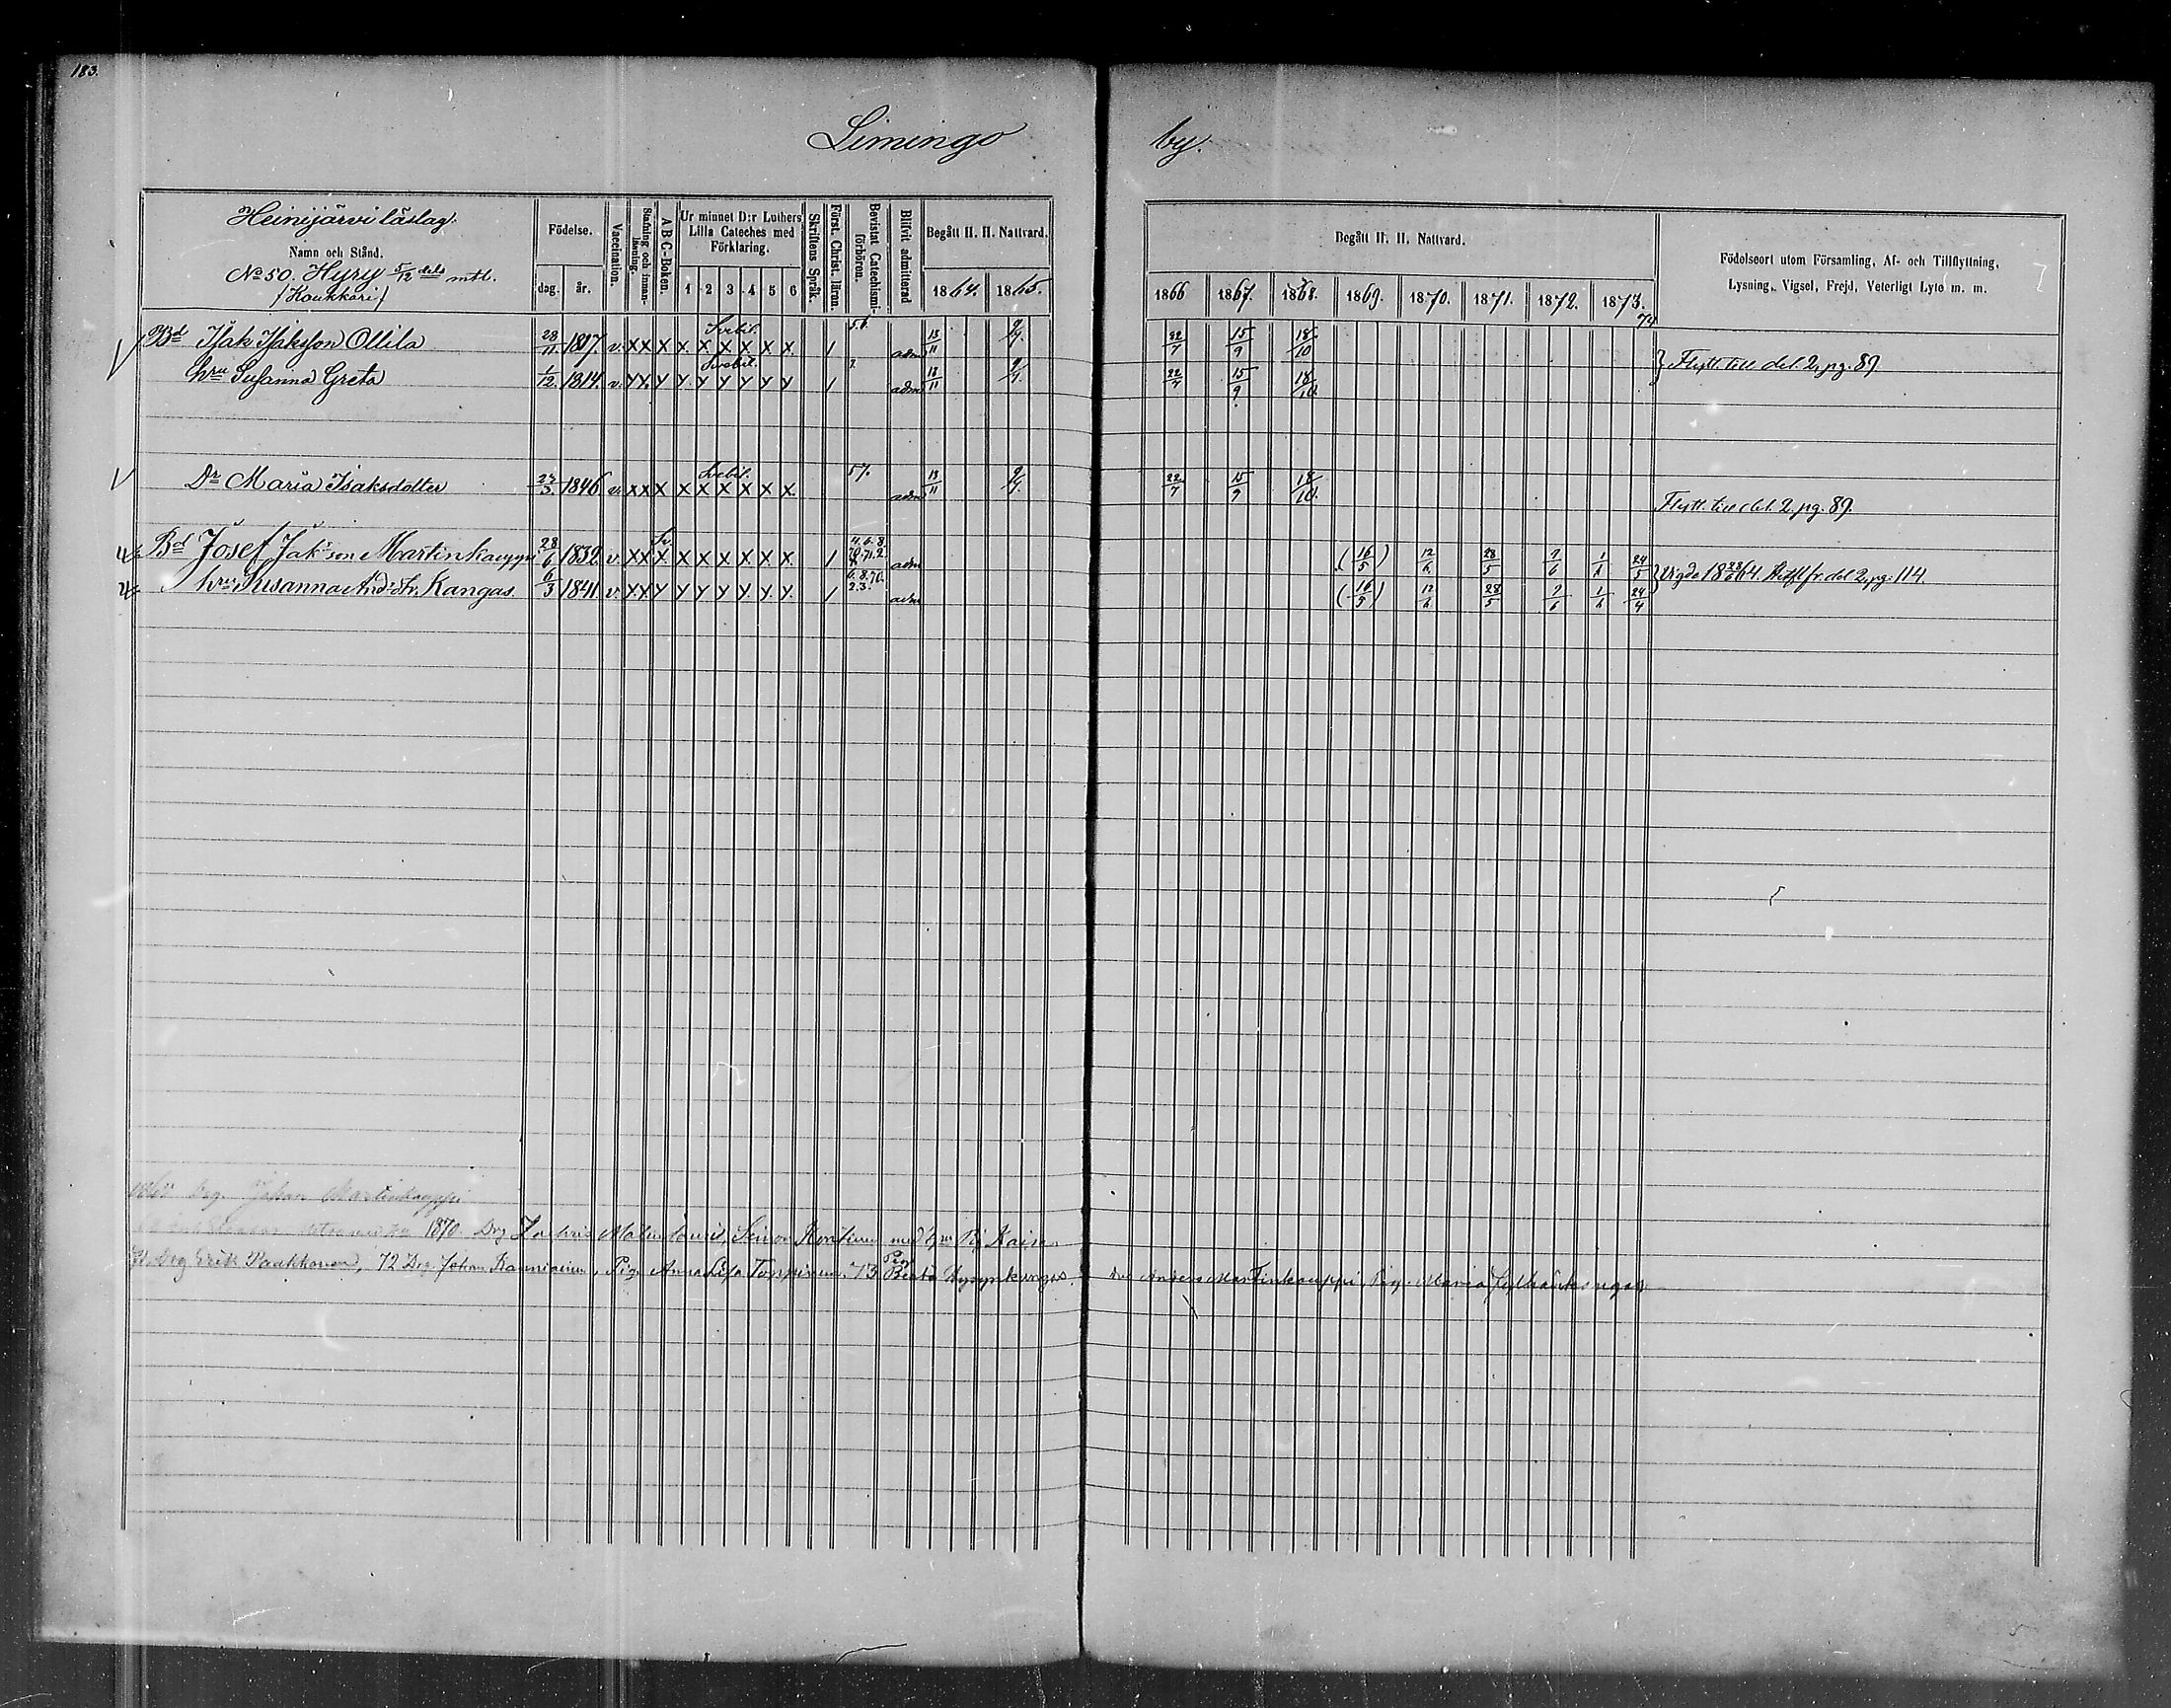 183.
Limingo by.
Heinijärvi läslag.
Namn och Stånd.
No 50. Hyry 5/12 dels mtl.
/Koukkari/
Födelse.
dag. år.
Vaccination.
Stafning och innanläsning.
A B C-Boken.
Ur minnet D:r Luthers Lilla Cateches med Förklaring.
1 2 3 4 5 6
Skriftens Språk.
Förest. Christ. läran.
Bevistat Catechismiförhören.
Blifvit admitterad
Begått H. H. Nattvard.
1864. 1865.
Begått H. H. Nattvard.
1866 1867. 1868. 1869. 1870. 1871. 1872. 1873. 74
Födelseort utom Församling, Af- och Tillflyttning,
Lysning, Vigsel, Frejd, Veterligt Lyte m. m.
Bd Isak Isaksson Ollila 28/11 1807. v. x x x x x x x x x 1 5.6. adm 13/11 9/7. 22/7 15/9 18/10
hru Susanna Greta 1/12 1814. v. y y y y y y y y y 1 adm 13/11 9/7. 22/7 15/9 18/10. } Flytt. till del. 2, pg. 89.
Dr Maria Isaksdotter 1846 v. x x x x x x x x x adm 13/11 9/7. 22/7 15/9 18/10. Flytt. till del. 2, pg. 89.
Bd Josef Jak:son Martinkauppi 28/6 1832. v. x x x x x x x x x 1 adm (16/5) 12/6 28/5 7/6 1/6 24/5
hru Susanna And:dr. Kangas. 6/3 1841 v. y y y y y y y y y 1 adm (16/5) 12/6 28/5 7/6 1/6 24/4 } Vigde 18 64. fr. del 2, pg. 114.
Drg. Johan Martinkauppi
1870. Drg
71. Drg Erik Paakkonen, 72 Drg. Johan, Pig. Anna Lisa Toppinen. 73 Pig Beata Anders Martinkauppi, Pig. Maria